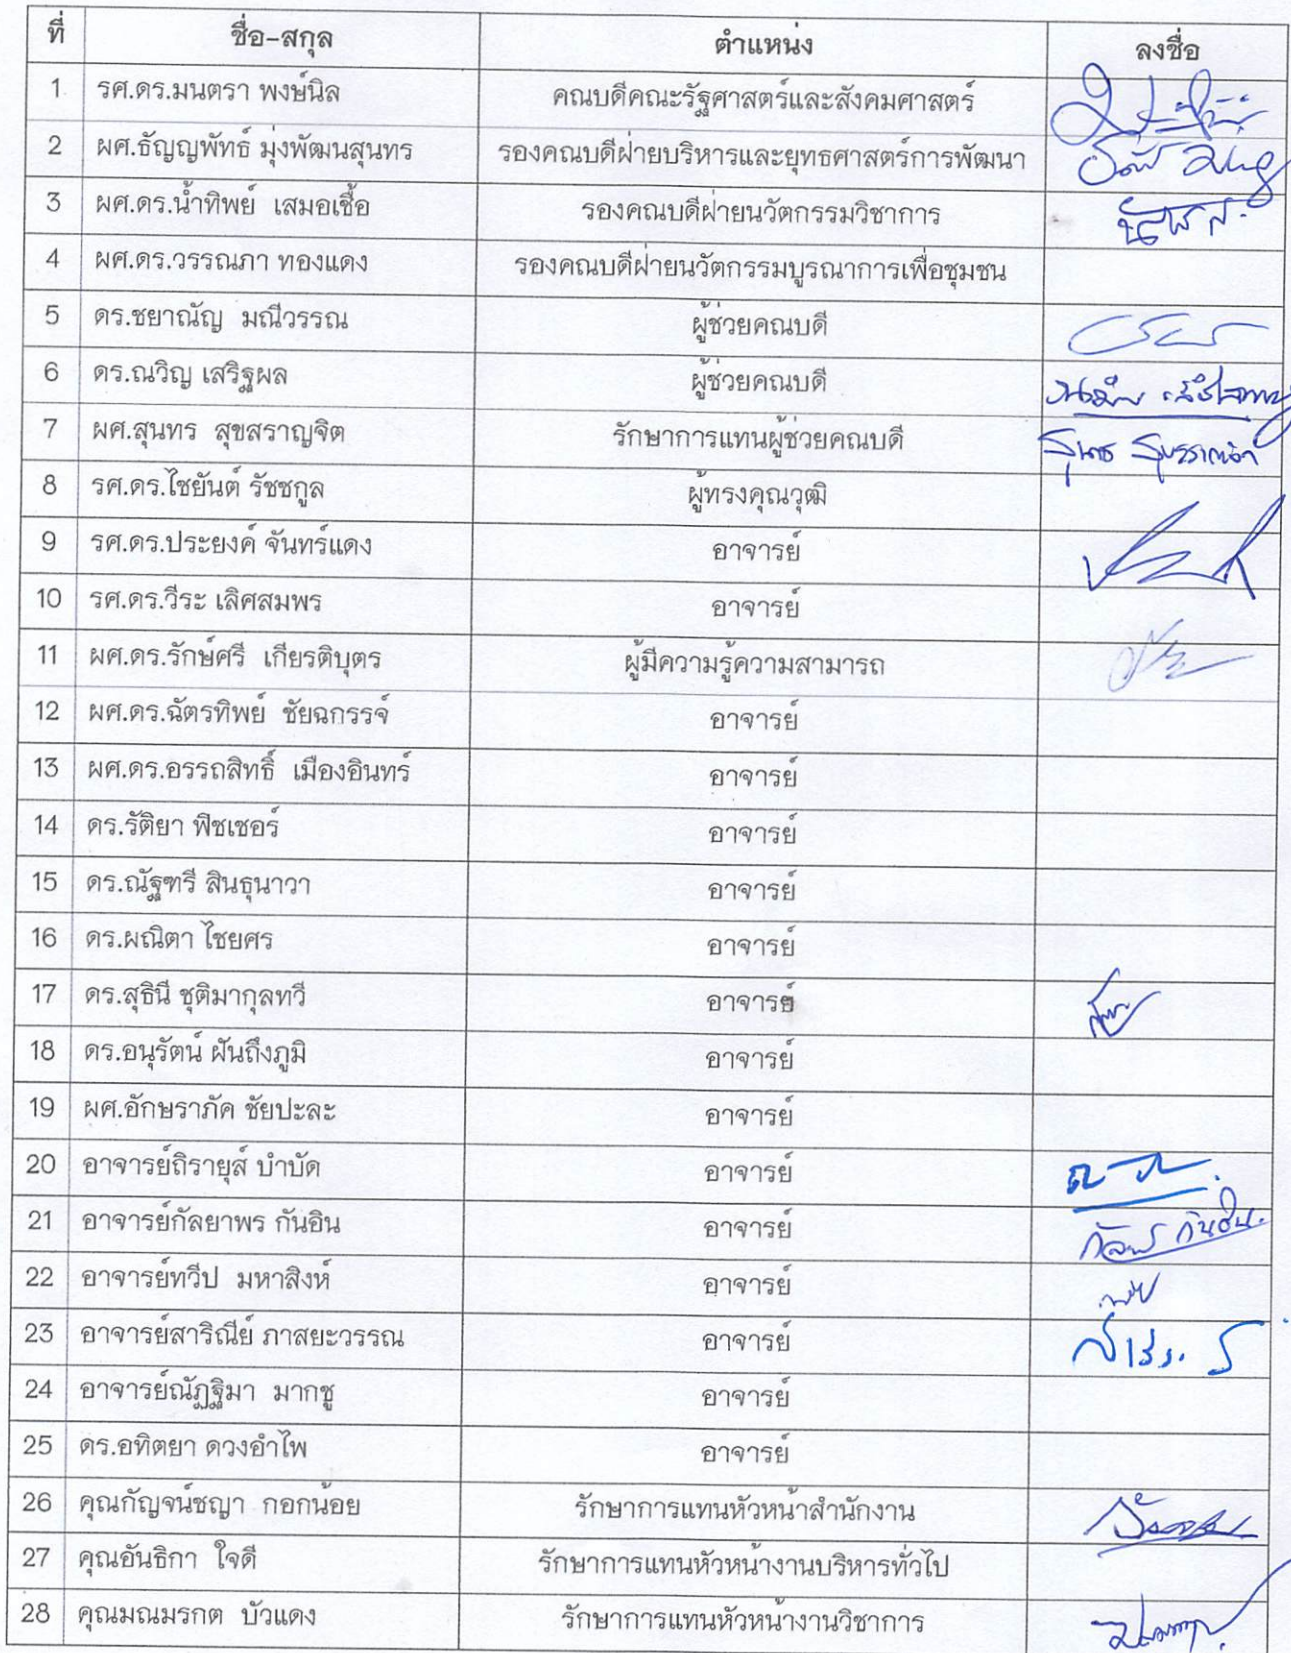 ที่ ชื่อ-สกุล ตำแหน่ง ลงชื่อ
1 รศ.ดร.มนตรา พงษ์นิล คณบดีคณะรัฐศาสตร์และสังคมศาสตร์
2 ผศ.ธัญญพัทธ์ มุ่งพัฒนสุนทร รองคณบดีฝ่ายบริหารและยุทธศาสตร์การพัฒนา
3 ผศ.ดร.น้ำทิพย์ เสมอเชื้อ รองคณบดีฝ่ายนวัตกรรมวิชาการ
4 ผศ.ดร.วรรณภา ทองแดง รองคณบดีฝ่ายนวัตกรรมบูรณาการเพื่อชุมชน
5 ดร.ชยาณัญ มณีวรรณ ผู้ช่วยคณบดี
6 ดร.ณวิญ เสริฐผล ผู้ช่วยคณบดี
7 ผศ.สุนทร สุขสราญจิต รักษาการแทนผู้ช่วยคณบดี สุนทร สุขสราญจิต
8 รศ.ดร.ไชยันต์ รัชชกูล ผู้ทรงคุณวุฒิ
9 รศ.ดร.ประยงค์ จันทร์แดง อาจารย์
10 รศ.ดร.วีระ เลิศสมพร อาจารย์
11 ผศ.ดร.รักษ์ศรี เกียรติบุตร ผู้มีความรู้ความสามารถ
12 ผศ.ดร.ฉัตรทิพย์ ชัยฉกรรจ์ อาจารย์
13 ผศ.ดร.อรรถสิทธิ์ เมืองอินทร์ อาจารย์
14 ดร.รัติยา ฟิชเชอร์ อาจารย์
15 ดร.ณัฐฑรี สินธุนาวา อาจารย์
16 ดร.ผณิตา ไชยศร อาจารย์
17 ดร.สุธินี ชุติมากุลทวี อาจารย์
18 ดร.อนุรัตน์ ฝันถึงภูมิ อาจารย์
19 ผศ.อักษราภัค ชัยปะละ อาจารย์
20 อาจารย์ถิรายุส์ บำบัด อาจารย์
21 อาจารย์กัลยาพร กันอิน อาจารย์
22 อาจารย์ทวีป มหาสิงห์ อาจารย์
23 อาจารย์สาริณีย์ ภาสยะวรรณ อาจารย์
24 อาจารย์ณัฏฐิมา มากชู อาจารย์
25 ดร.อทิตยา ดวงอำไพ อาจารย์
26 คุณกัญจน์ชญา กอกน้อย รักษาการแทนหัวหน้าสำนักงาน
27 คุณอันธิกา ใจดี รักษาการแทนหัวหน้างานบริหารทั่วไป
28 คุณมณมรกต บัวแดง รักษาการแทนหัวหน้างานวิชาการ